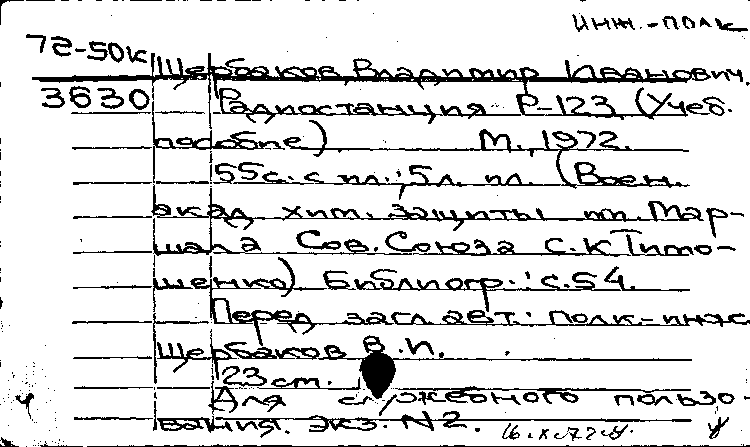 инж.-полк
72-50к
Щербаков, Владимир Иванович.
3630
Радиостанция Р-123. (Учеб.
пособие). М., 1972.
55с. с ил.; 5л. ил. (Воен.
акад. хим. защиты им. Мар-
шала Сов. Союза С.К Тимо-
шенко). Библиогр.: с.54.
Перед загл. авт.: полк.-инж.
Щербаков В.И.
23 см.
Для служебного пользо-
вания. Экз. N2.